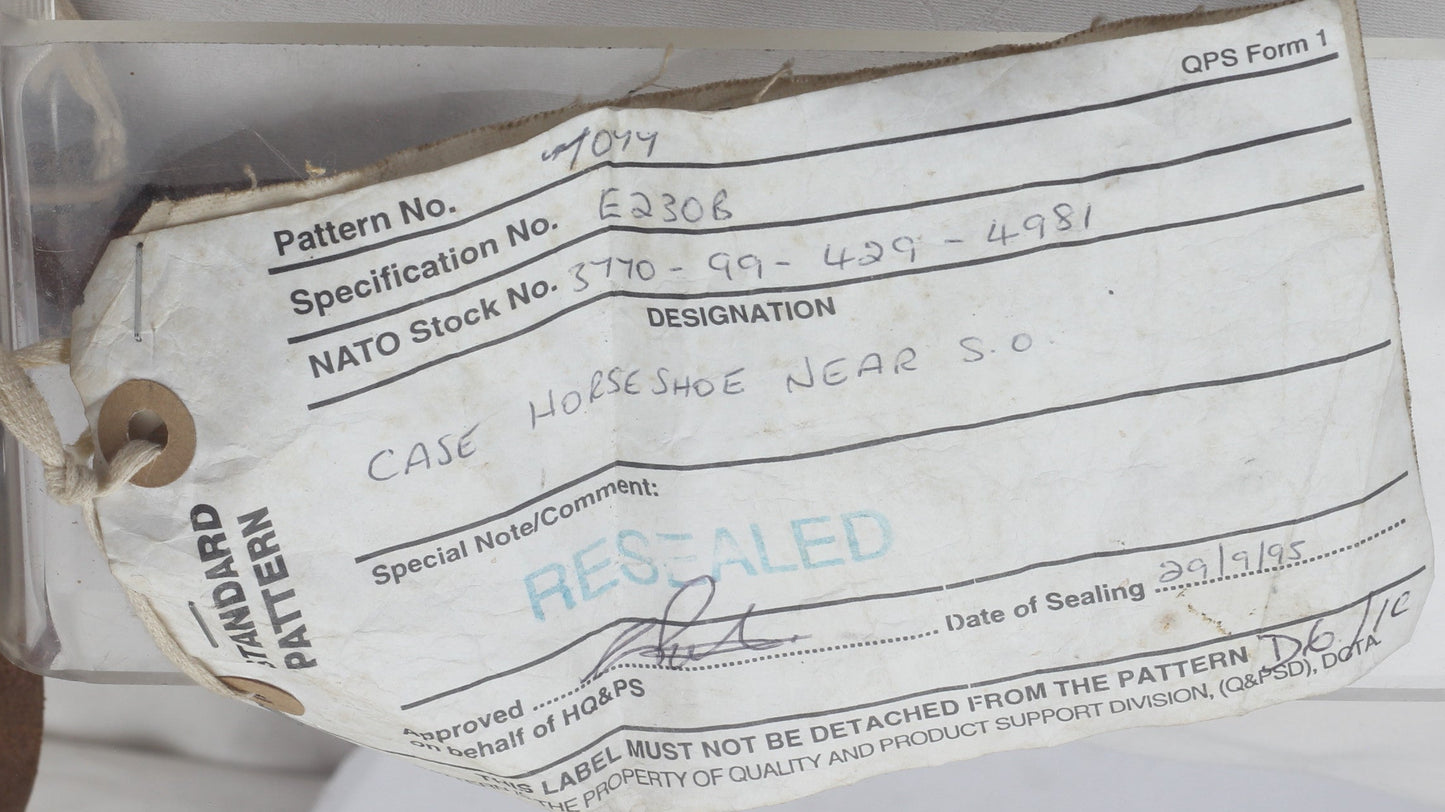 QPS Form 1
Pattern No.
Specification No. E230B
NATO Stock No. 3770-99-429-4981
DESIGNATION
CASE HORSESHOE NEAR S.O.
Special Note/Comment:
RESEALED
Approved
on behalf of HQ&PS
Date of Sealing 29/9/95
THIS LABEL MUST NOT BE DETACHED FROM THE PATTERN
THE PROPERTY OF QUALITY AND PRODUCT SUPPORT DIVISION, (Q&PSD), DCTA
STANDARD
PATTERN